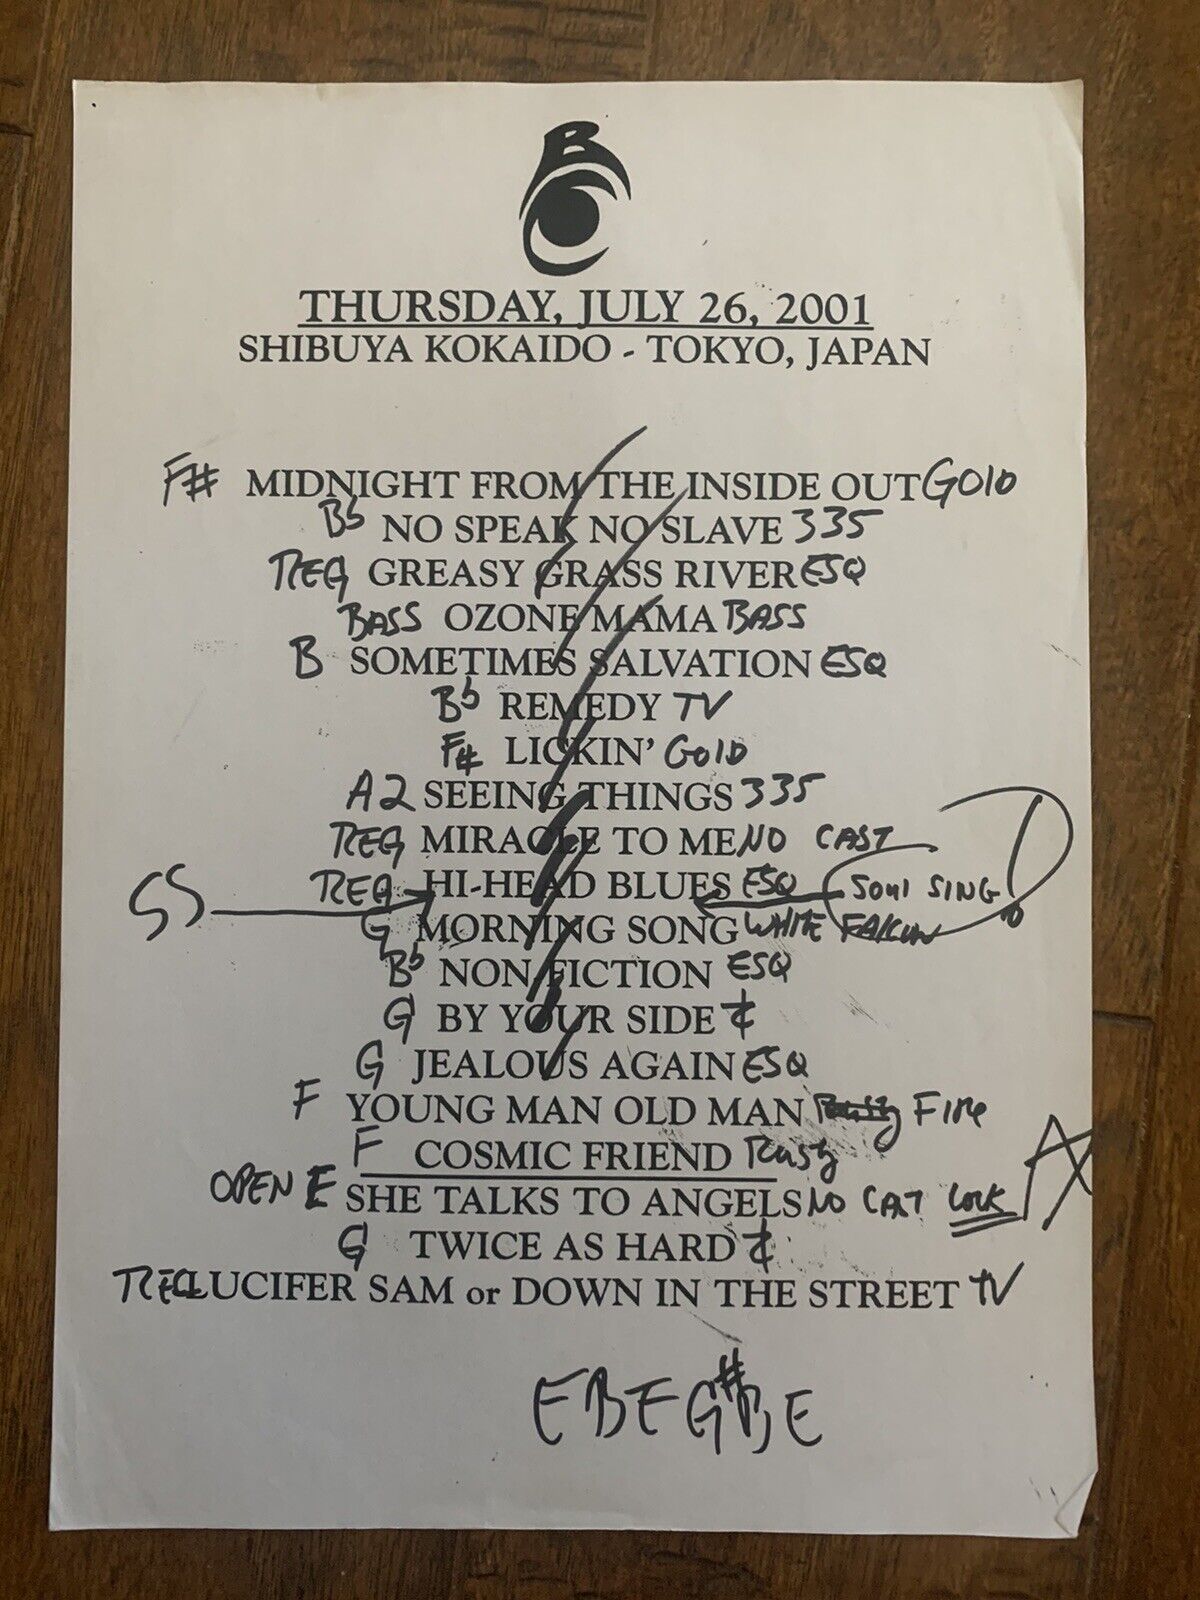 B C
THURSDAY, JULY 26, 2001
SHIBUYA KOKAIDO - TOKYO, JAPAN
F# MIDNIGHT FROM THE INSIDE OUT GOLD
Bb NO SPEAK NO SLAVE 335
REG GREASY GRASS RIVER ESQ
BASS OZONE MAMA BASS
B SOMETIMES SALVATION ESQ
Bb REMEDY TV
F# LICKIN' GOLD
A2 SEEING THINGS 335
REG MIRACLE TO ME NO CAST
SS REG HI-HEAD BLUES ESQ SOUL SING
G MORNING SONG WHITE FALCON
Bb NON-FICTION ESQ
G BY YOUR SIDE
G JEALOUS AGAIN ESQ
F YOUNG MAN OLD MAN Rusty FIRE
F COSMIC FRIEND Rusty
OPEN E SHE TALKS TO ANGELS NO CAST
G TWICE AS HARD
REG LUCIFER SAM or DOWN IN THE STREET TV
E B E G# B E